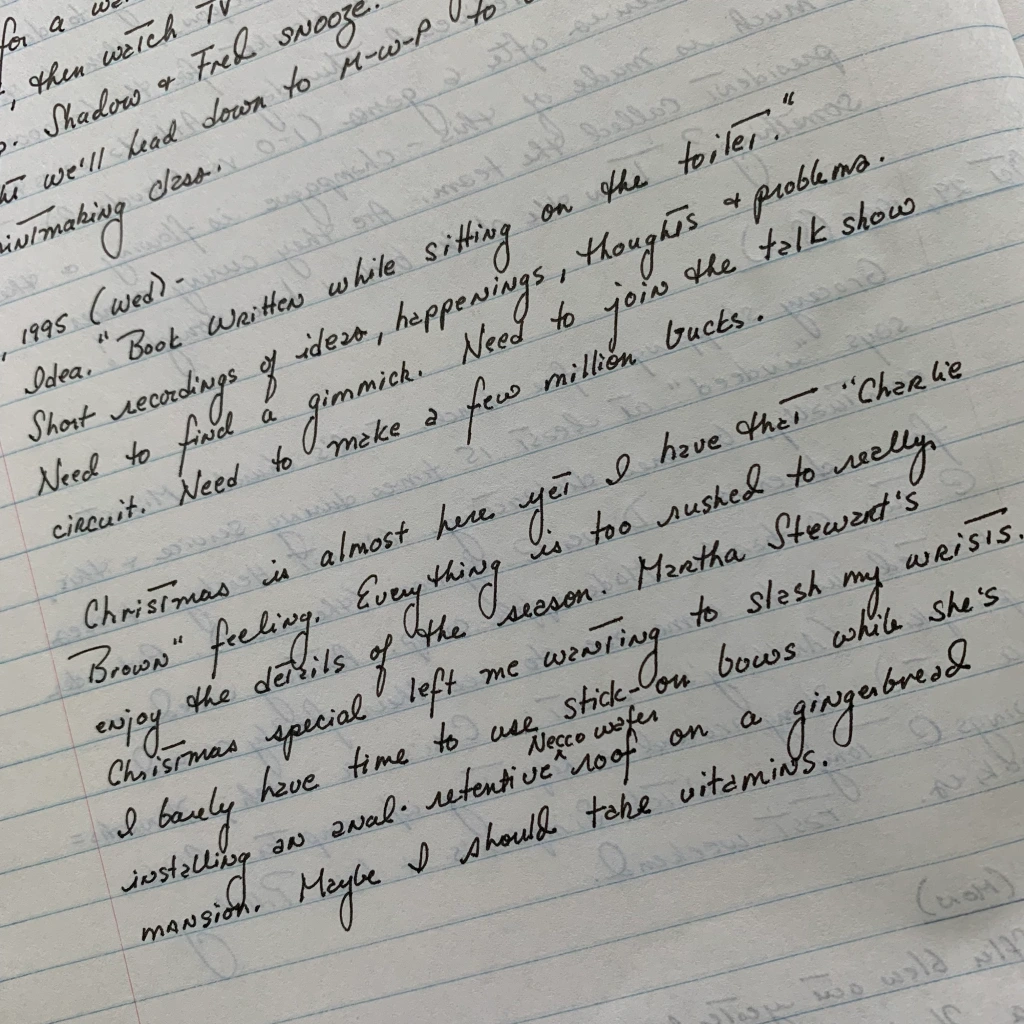 for a
, then watch TV
. Shadow & Fred snooze.
we'll head down to M-W-P to
intmaking class.
, 1995 (Wed) -
Idea. "Book Written while sitting on the toilet."
Short recordings of ideas, happenings, thoughts & problems.
Need to find a gimmick. Need to join the talk show
circuit. Need to make a few million bucks.
Christmas is almost here yet I have that "Charlie
Brown" feeling. Everything is too rushed to really
enjoy the details of the season. Martha Stewart's
Christmas special left me wanting to slash my wrists.
I barely have time to use stick-on bows while she's
installing an anal-retentive ^ Necco wafer roof on a gingerbread
mansion. Maybe I should take vitamins.